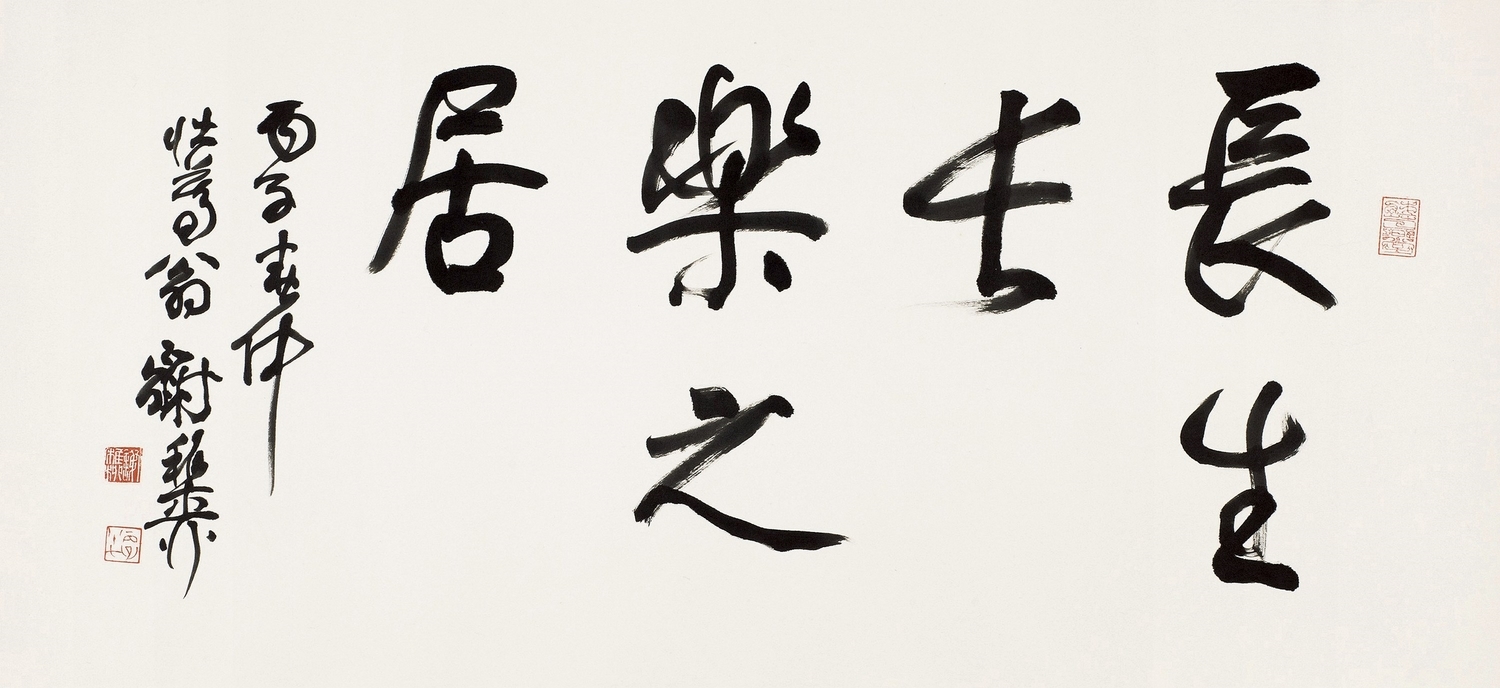 長生
長
樂之
居
丙子春仲
壯為翁謝稚柳